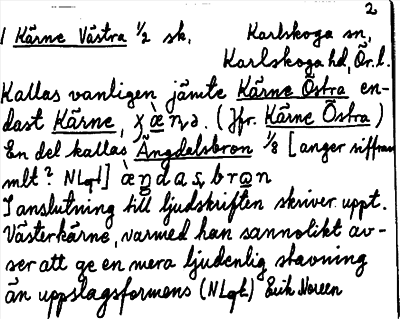 2
1 Kärne Västra 1/2 sk. Karlskoga sn,
Karlskoga hd, Ör. l.
Kallas vanligen jämte Kärne Östra en-
dast Kärne, (Jfr. Kärne Östra)
En del kallas Ängdalsbron 1/8 [anger siffran
mlt? NLgl]
I anslutning till ljudskriften skriver uppt.
Västerkärne, varmed han sannolikt av-
ser att ge en mera ljudenlig stavning
än uppslagsformens (NLgl.) Erik Noreen